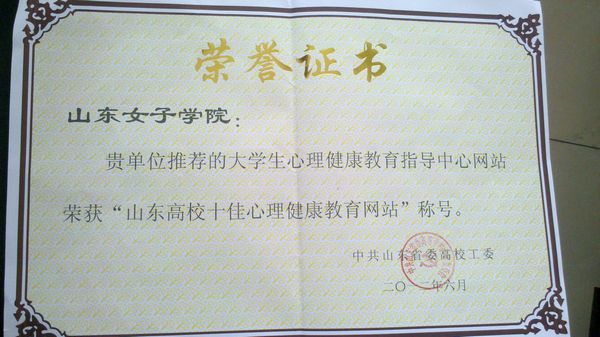 荣誉证书
山东女子学院：
贵单位推荐的大学生心理健康教育指导中心网站
荣获“山东高校十佳心理健康教育网站”称号。
中共山东省委高校工委
二〇一 年六月